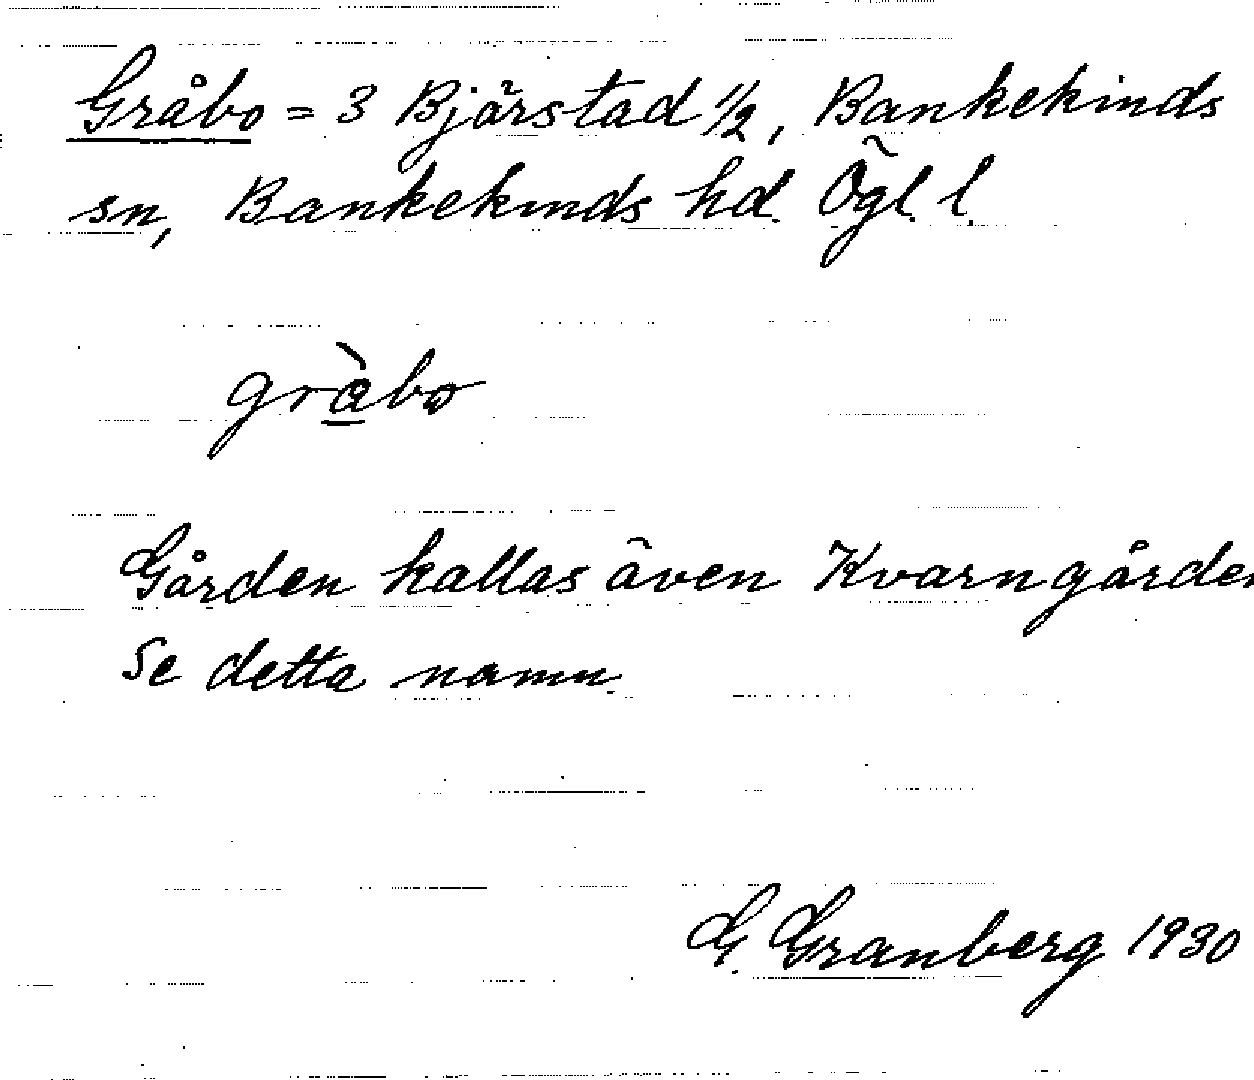 Gråbo = 3 Bjärstad 1/2, Bankekinds
sn, Bankekinds hd. Ögl. l.
gràbo
Gården kallas även Kvarngården
Se detta namn.
G. Granberg 1930